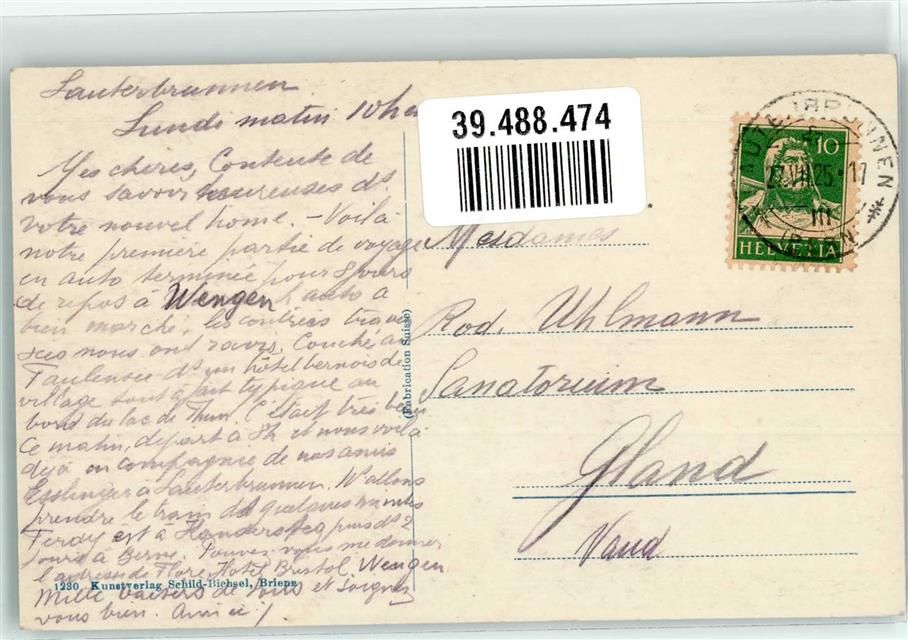 Lauterbrunnen
Lundi matin 10h
Mes cheres, Contente de
vous savoir heureuses ds
votre nouvel home. - Voilà
notre premiere partie de voyage
en auto terminée pour 8 jours
de repos à Wengen L'auto a
bien marché, les contrées traver
sées nous ont ravis. Couché à
Faulensee ds un hôtel bernois de
village tout à fait typique au
bord du lac de Thun. C'était très beau
ce matin, départ à 8h et nous voilà
déjà en compagnie de nos amis
Esslinger à Lauterbrunnen. N. allons
prendre le train ds quelques minutes
Ferdy est à Kandersteg puis ds 2
jours à Berne. Pouvez-vous me donner
l'adresse de Flore, Hotel Bristol Wengen
Mille baisers de tous et soignez
vous bien.
1230 Kunstverlag Schild-Bichsel, Brienz
(Fabrication Suisse)
39.488.474
10
HELVETIA
LAUTERBRUNNEN
Mesdames
Rod. Uhlmann
Sanatorium
Gland
Vaud